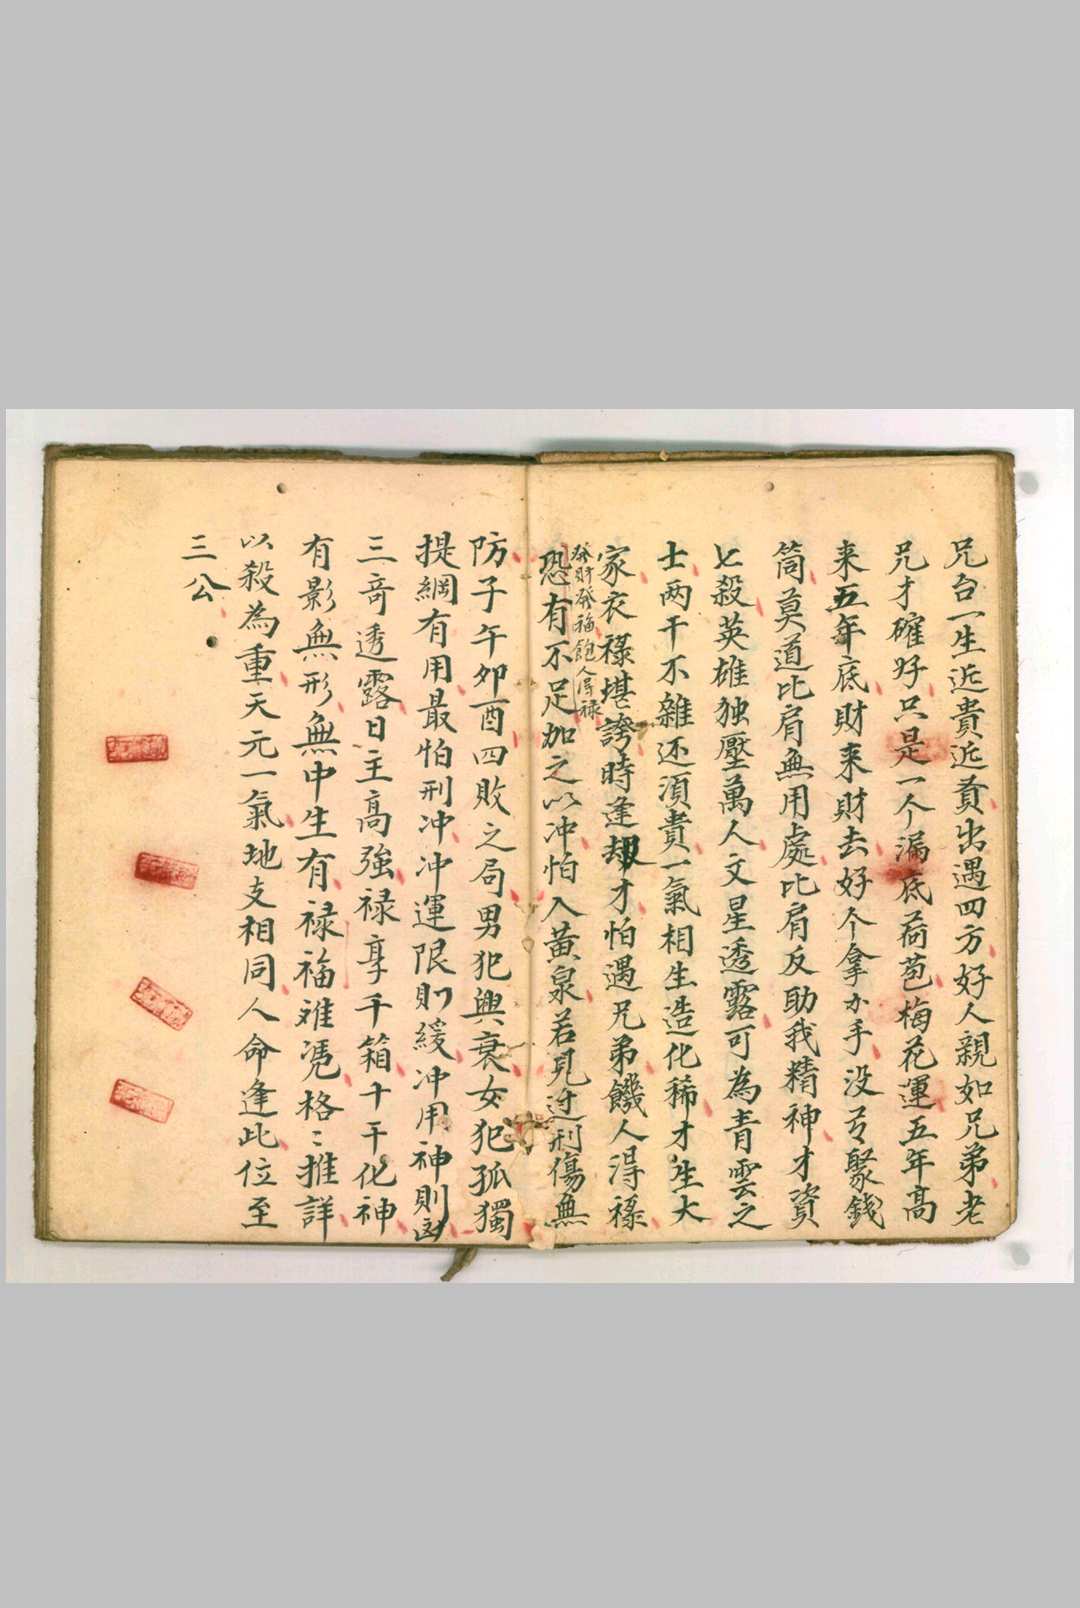 兄台一生近貴近貧出遇四方好人親如兄弟老
兄才確好只是一个漏底荷苞梅花運五年高
来五年底財来財去好个拿手没聚錢
筒莫道比肩無用處比肩反助我精神才資
七殺英雄独壓萬人文星透露可為青雲之
士两干不雜还須貴一氣相生造化稀才生大
家衣祿堪誇時逢刼才怕遇兄弟饑人得祿
發財發福飽人得禄
恐有不足加之以冲怕入黃泉若見过刑傷無
防子午夘酉四敗之局男犯興衰女犯孤獨
提綱有用最怕刑冲冲運限則緩冲用神則凶
三竒透露日主高強禄享千箱十干化神
有影無形無中生有禄福难凭格〻推詳
以殺為重天元一氣地支相同人命逢此位至
三公